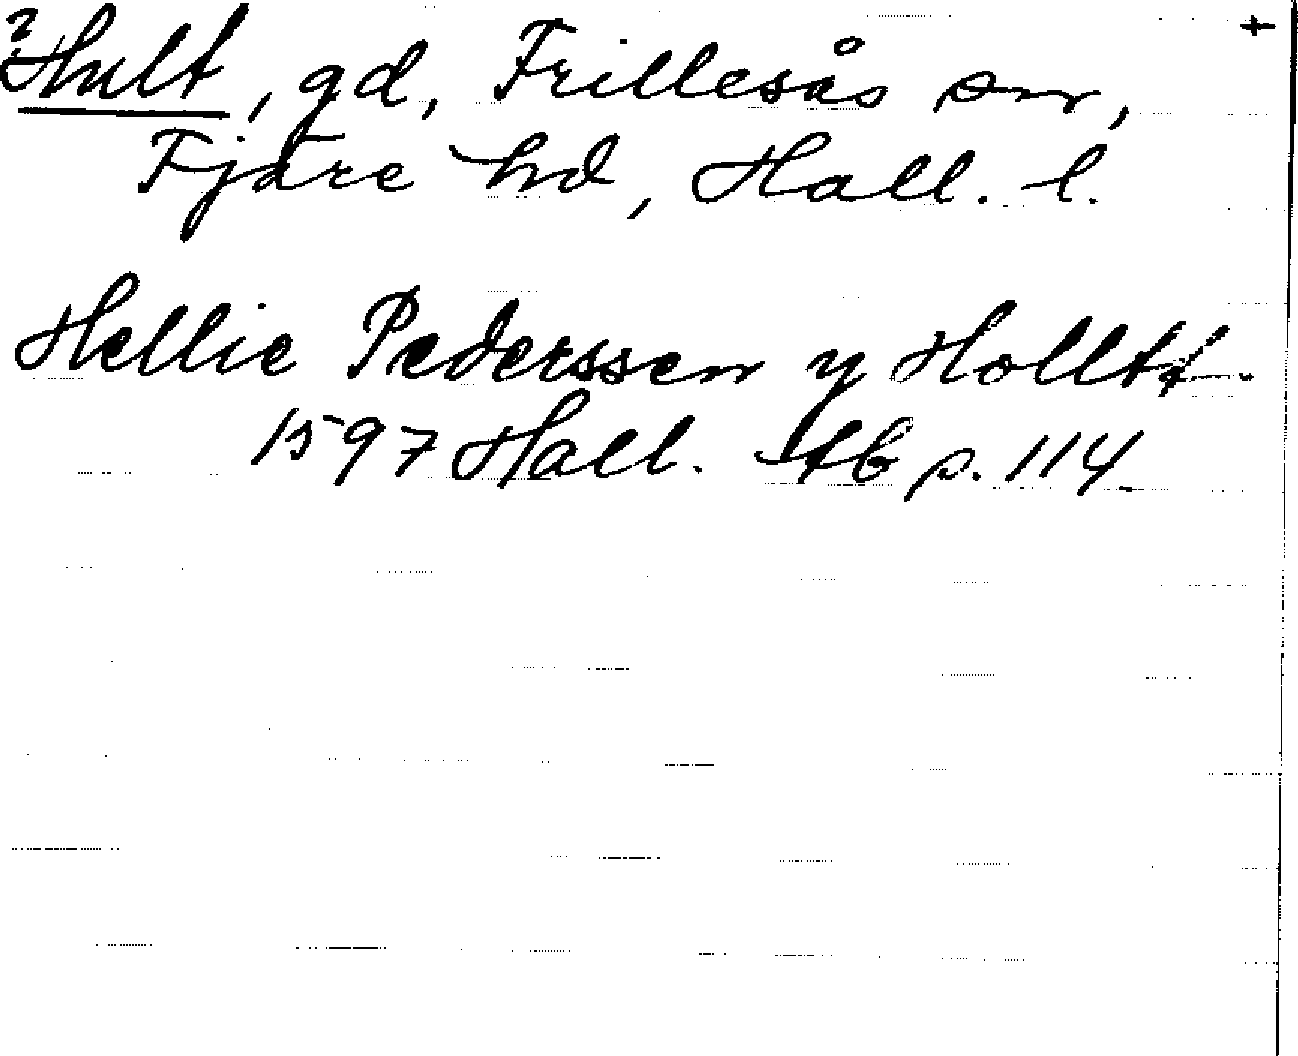 ? Hult, gd, Frillesås sn, +
Fjäre hd, Hall. l.
Hellie Pederssen y Holltt.
1597 Hall. tb p. 114